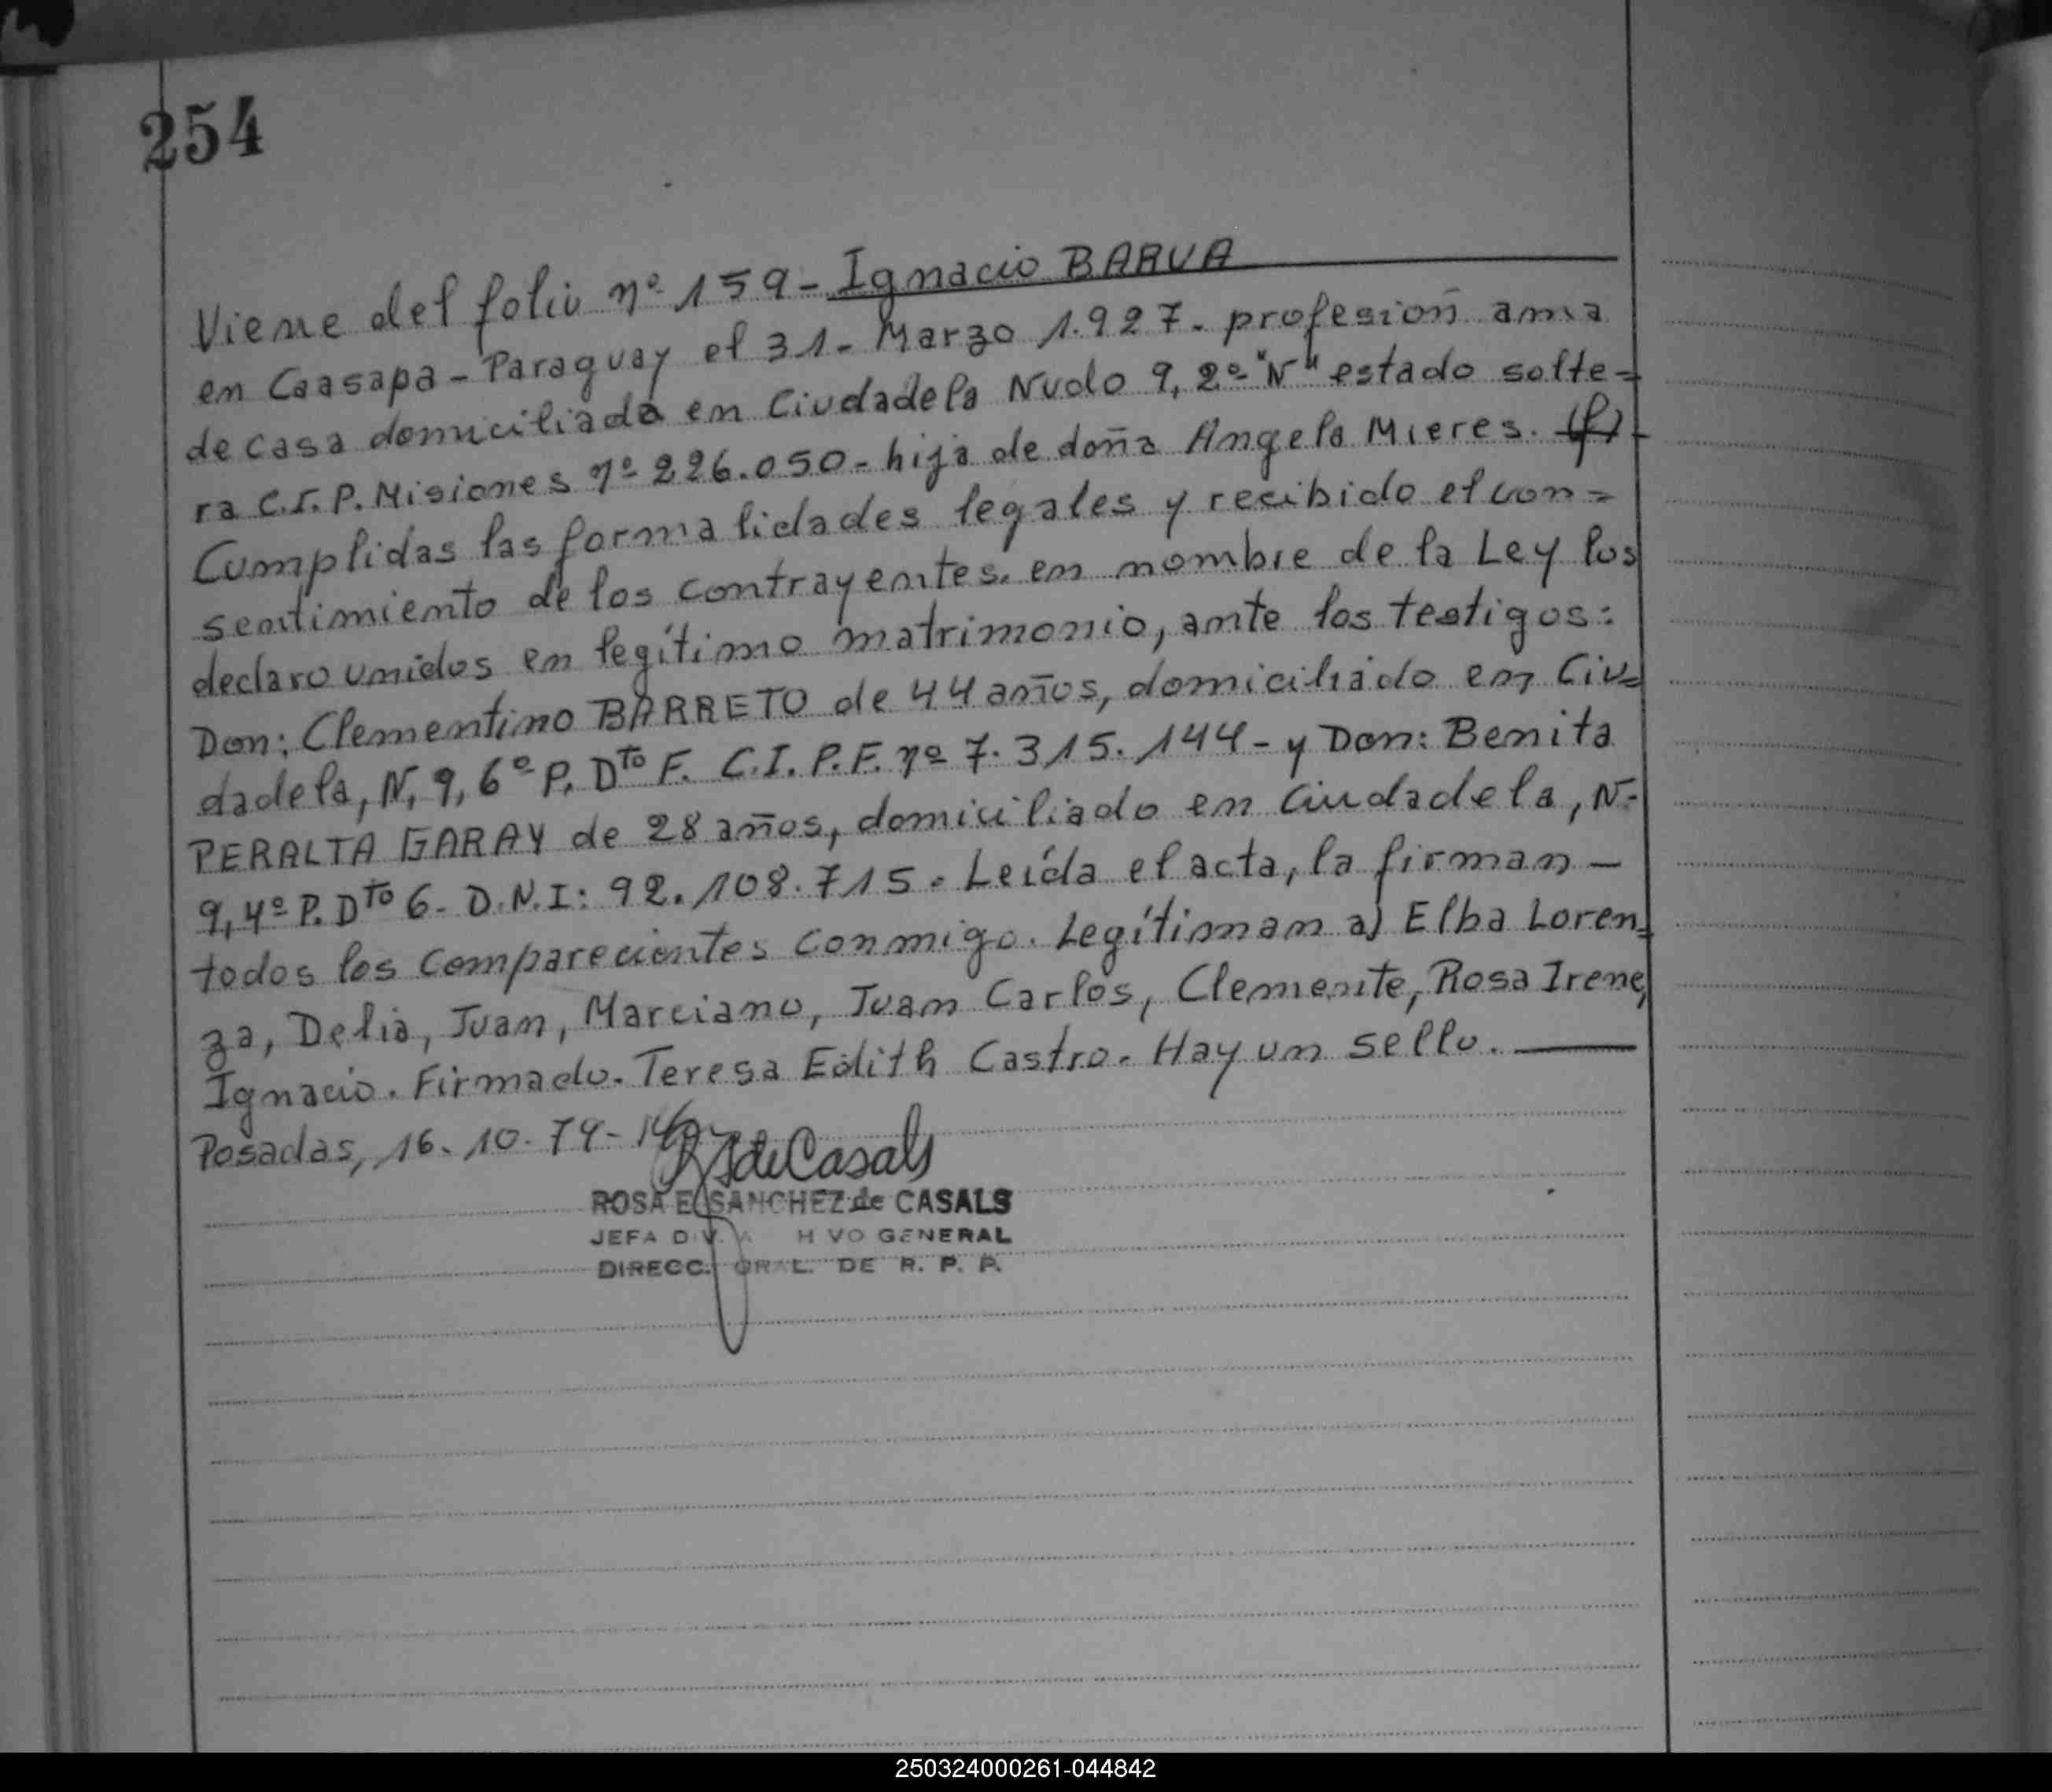 254
Viene del folio nº 159 - Ignacio BARUA
en Caasapa - Paraguay el 31 - Marzo 1.927 - profesion ama
de casa domiciliada en Ciudadela Nudo 9, 2º "N" estado solte=
ra C.I. P. Misiones nº 226.050 - hija de doña Angela Mieres.
Cumplidas las formalidades legales y recibido el con=
sentimiento de los contrayentes. en nombre de la Ley los
declaro unidos en legítimo matrimonio, ante los testigos:
Don: Clementino BARRETO de 44 años, domiciliado en Ciu=
dadela, N, 9, 6º P. Dto F. C.I. P.F. nº 7.315.144 - y Don: Benita
PERALTA GARAY de 28 años, domiciliado en Ciudadela, N-
9, 4º P. Dto 6 - D.N.I: 92.108.715 - Leída el acta, la firman -
todos los comparecientes conmigo. Legítiman a) Elba Loren=
za, Delia, Juan, Marciano, Juan Carlos, Clemente, Rosa Irene,
Ignacio. Firmado. Teresa Edith Castro. Hay un sello.
Posadas, 16-10-79 -
de Casals
ROSA E. SANCHEZ de CASALS
JEFA DIV. A H VO GENERAL
DIRECC. GRAL. DE R. P. P.
250324000261-044842